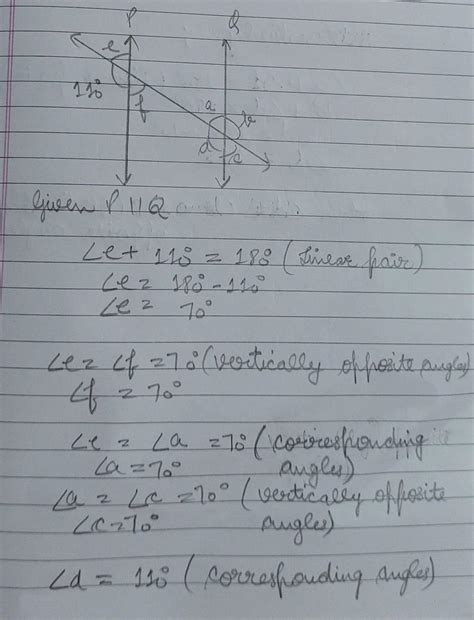 P Q
e
110°
f
a
b
d
c
Given P || Q
∠e + 110° = 180° (linear pair)
∠e = 180° - 110°
∠e = 70°
∠e = ∠f = 70° (vertically opposite angles)
∠f = 70°
∠e = ∠a = 70° (corresponding
∠a = 70° angles)
∠a = ∠c = 70° (vertically opposite
∠c = 70° angles)
∠d = 110° (corresponding angles)